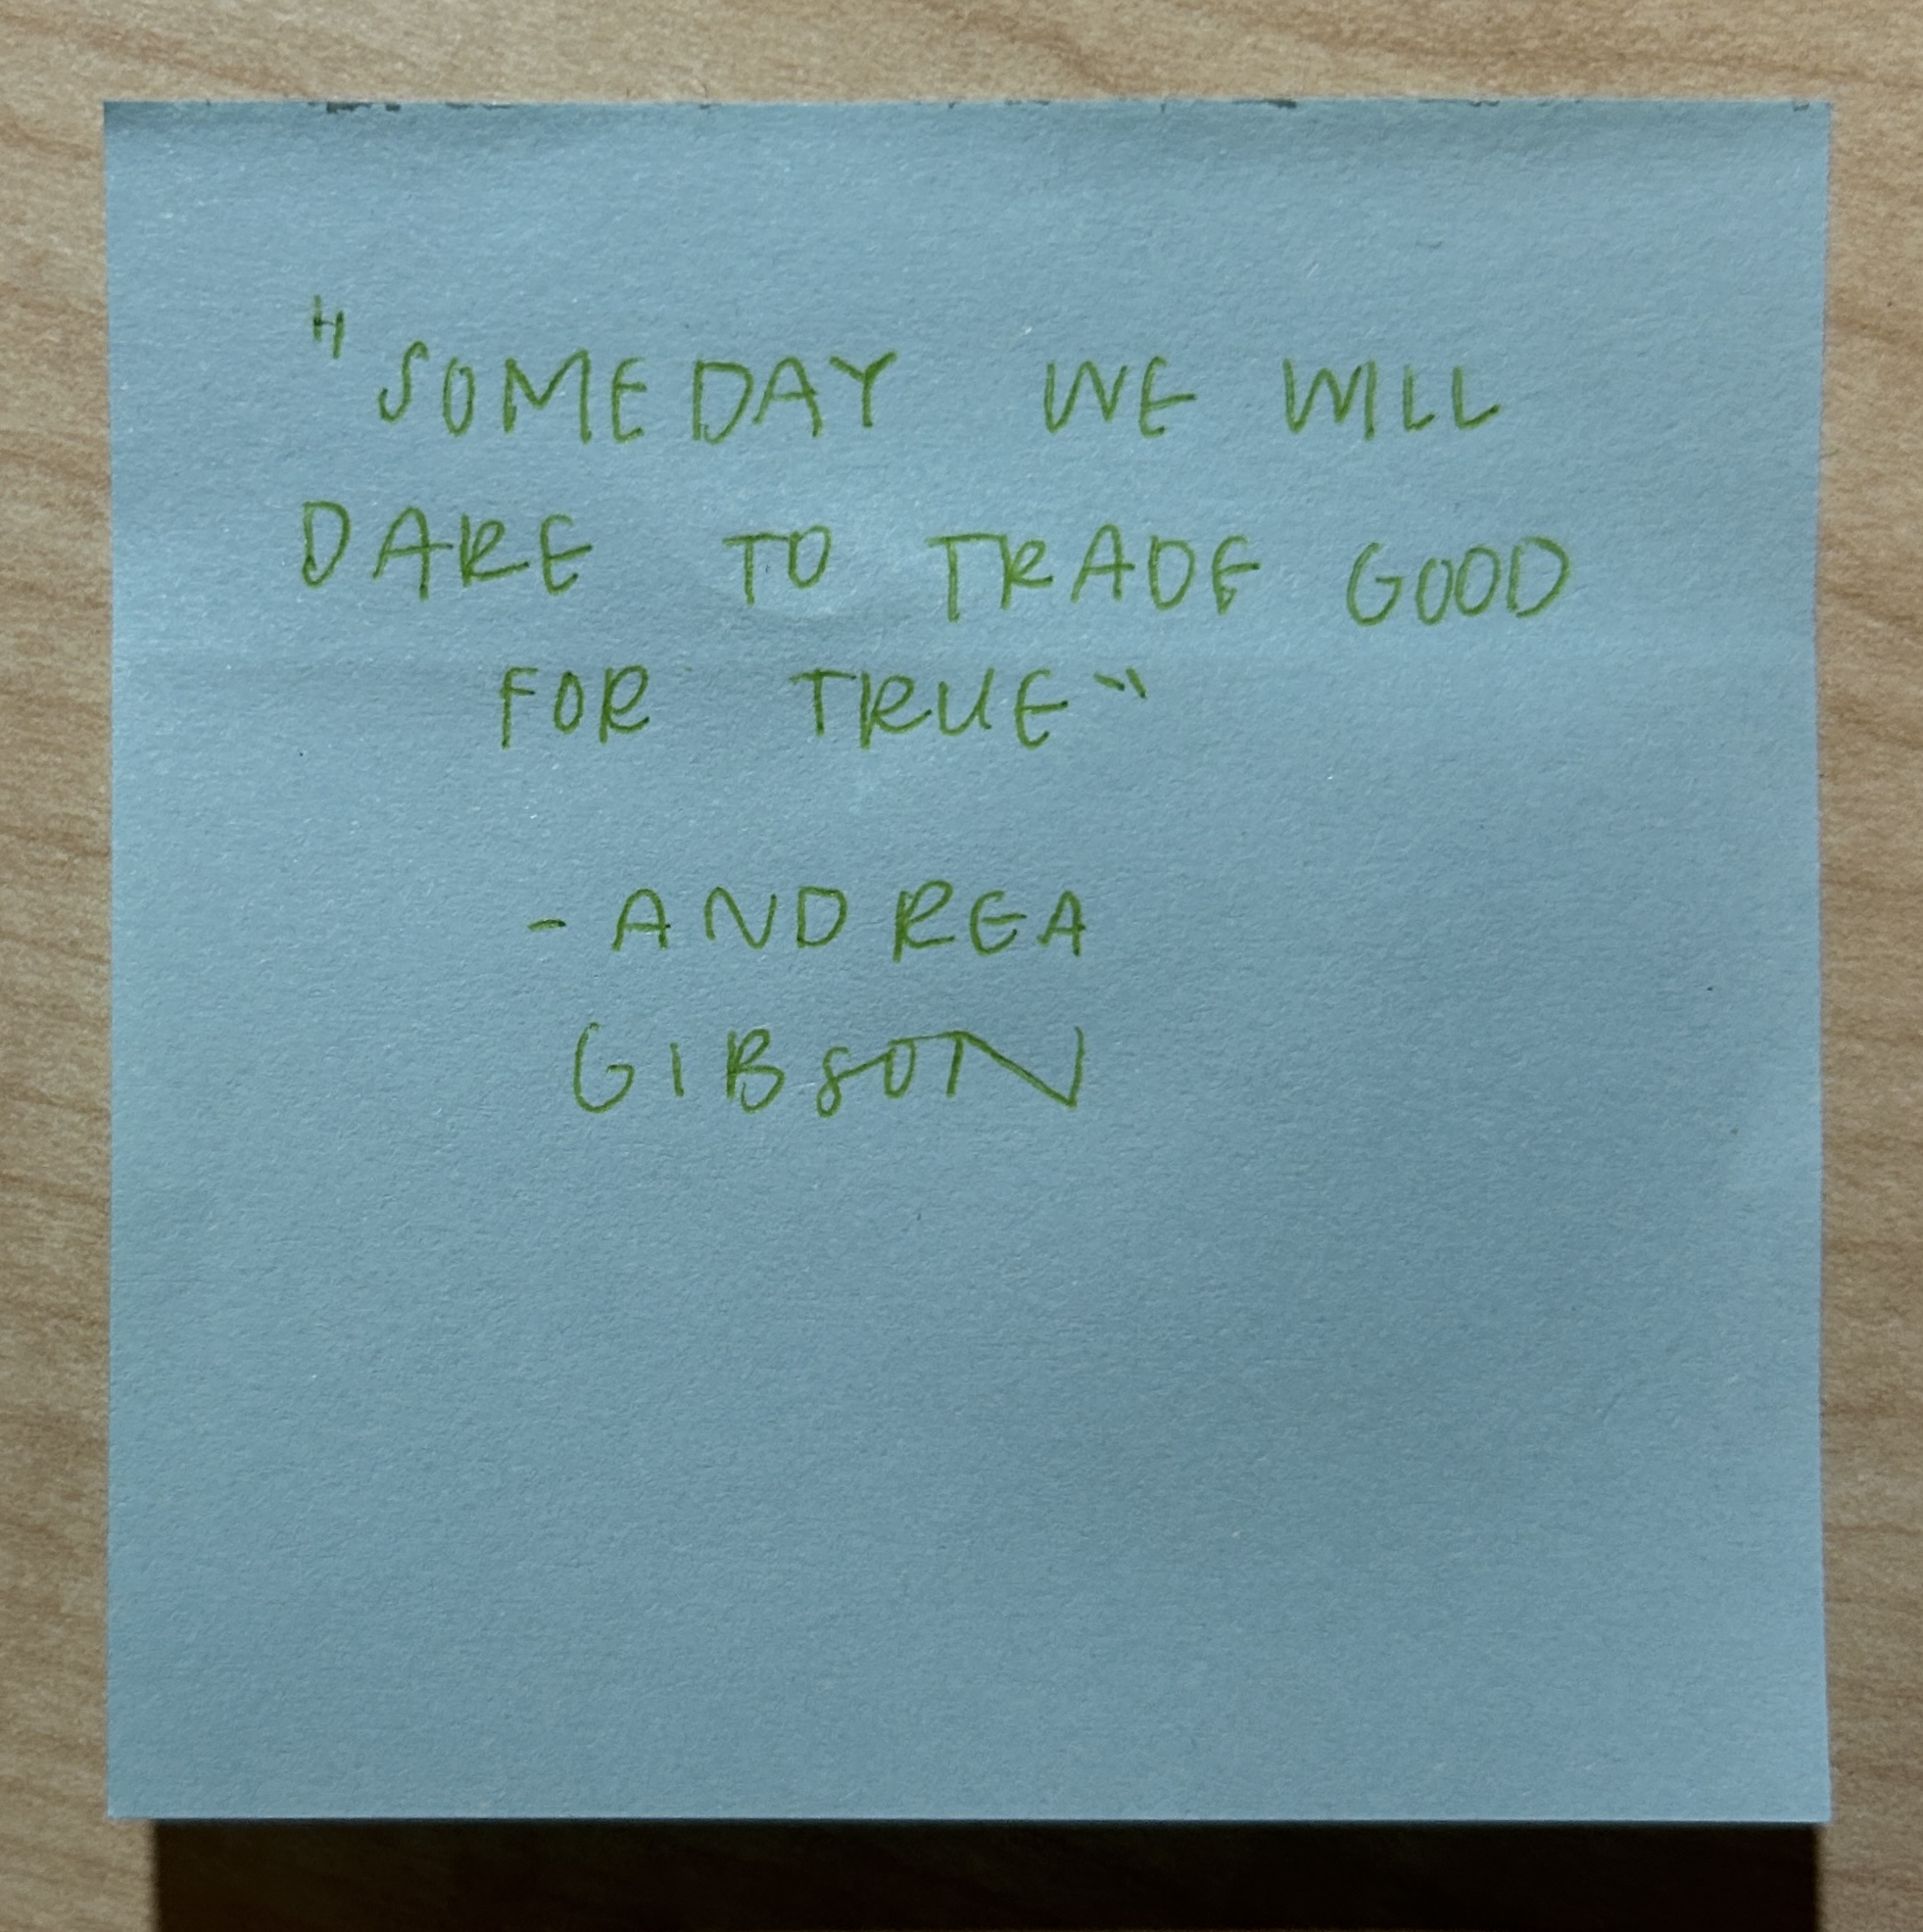 "SOMEDAY WE WILL
DARE TO TRADE GOOD
FOR TRUE"
- ANDREA
GIBSON